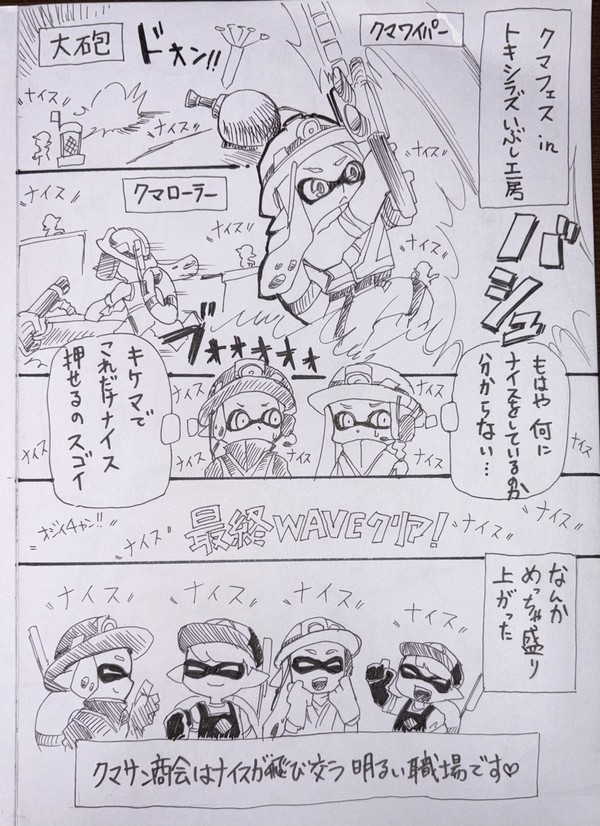 クマフェス in
トキシラズいぶし工房
クマワイパー
ドオン!!
大砲
ナイス
ナイス
ナイス
バシュ
クマローラー
ナイス
ナイス
ナイス
ナイス
ブォォォォォ
もはや 何に
ナイスをしているのか
分からない…
ナイス
ナイス
ナイス
ナイス
ナイス
ナイス
キケマで
これだけナイス
押せるのスゴイ
オジイチャン!!
ナイス
最終WAVEクリア!
ナイス
ナイス
なんか
めっちゃ盛り
上がった
ナイス
ナイス
ナイス
ナイス
クマサン商会はナイスが飛び交う 明るい職場です♡